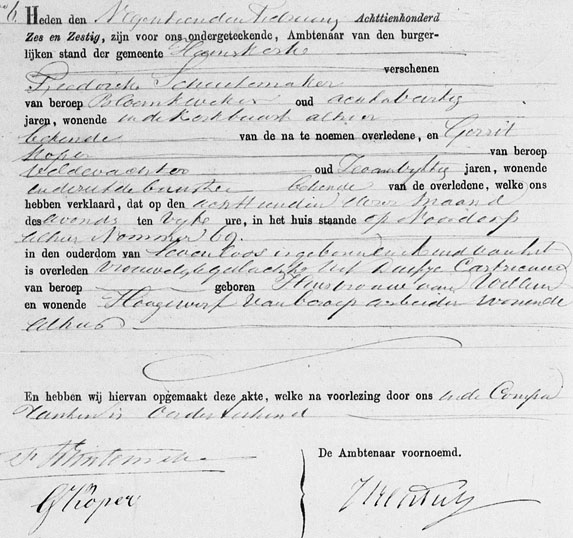 6. Heden den Negentienden Februarij Achttienhonderd
Zes en Zestig, zijn voor ons ondergeteekende, Ambtenaar van den burger-
lijken stand der gemeente Heemskerk
verschenen
Frederik Schuitemaker
van beroep Bloemkweeker oud achtenveertig
jaren, wonende in de Kerkbuurt alhier
bekende van de na te noemen overledene, en Gerrit
Koper van beroep
veldwachter oud Tweeenvijftig jaren, wonende
bekende van de overledene, welke ons
hebben verklaard, dat op den achttienden dezer maand
des avonds ten Vijf ure, in het huis staande op Noordorp
alhier Nommer 69.
in den ouderdom van levenloos ongeboren kind van het
is overleden vrouwelijk geslacht uit Duifje Castricum
van beroep geboren Huisvrouw van Willem
en wonende Hoogewerf van beroep arbeider wonende
alhier
En hebben wij hiervan opgemaakt deze akte, welke na voorlezing door ons en de Compa
ranten is onderteekend
De Ambtenaar voornoemd.
G Koper